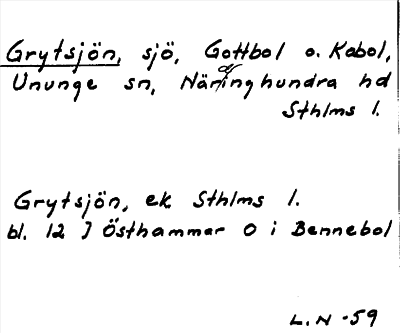 Grytsjön, sjö, Gottbol o. Kabol,
Ununge sn, Närdinghundra hd
Sthlms l.
Grytsjön, ek Sthlms l.
bl. 12 J Östhammar O i Bennebol
L.N -59